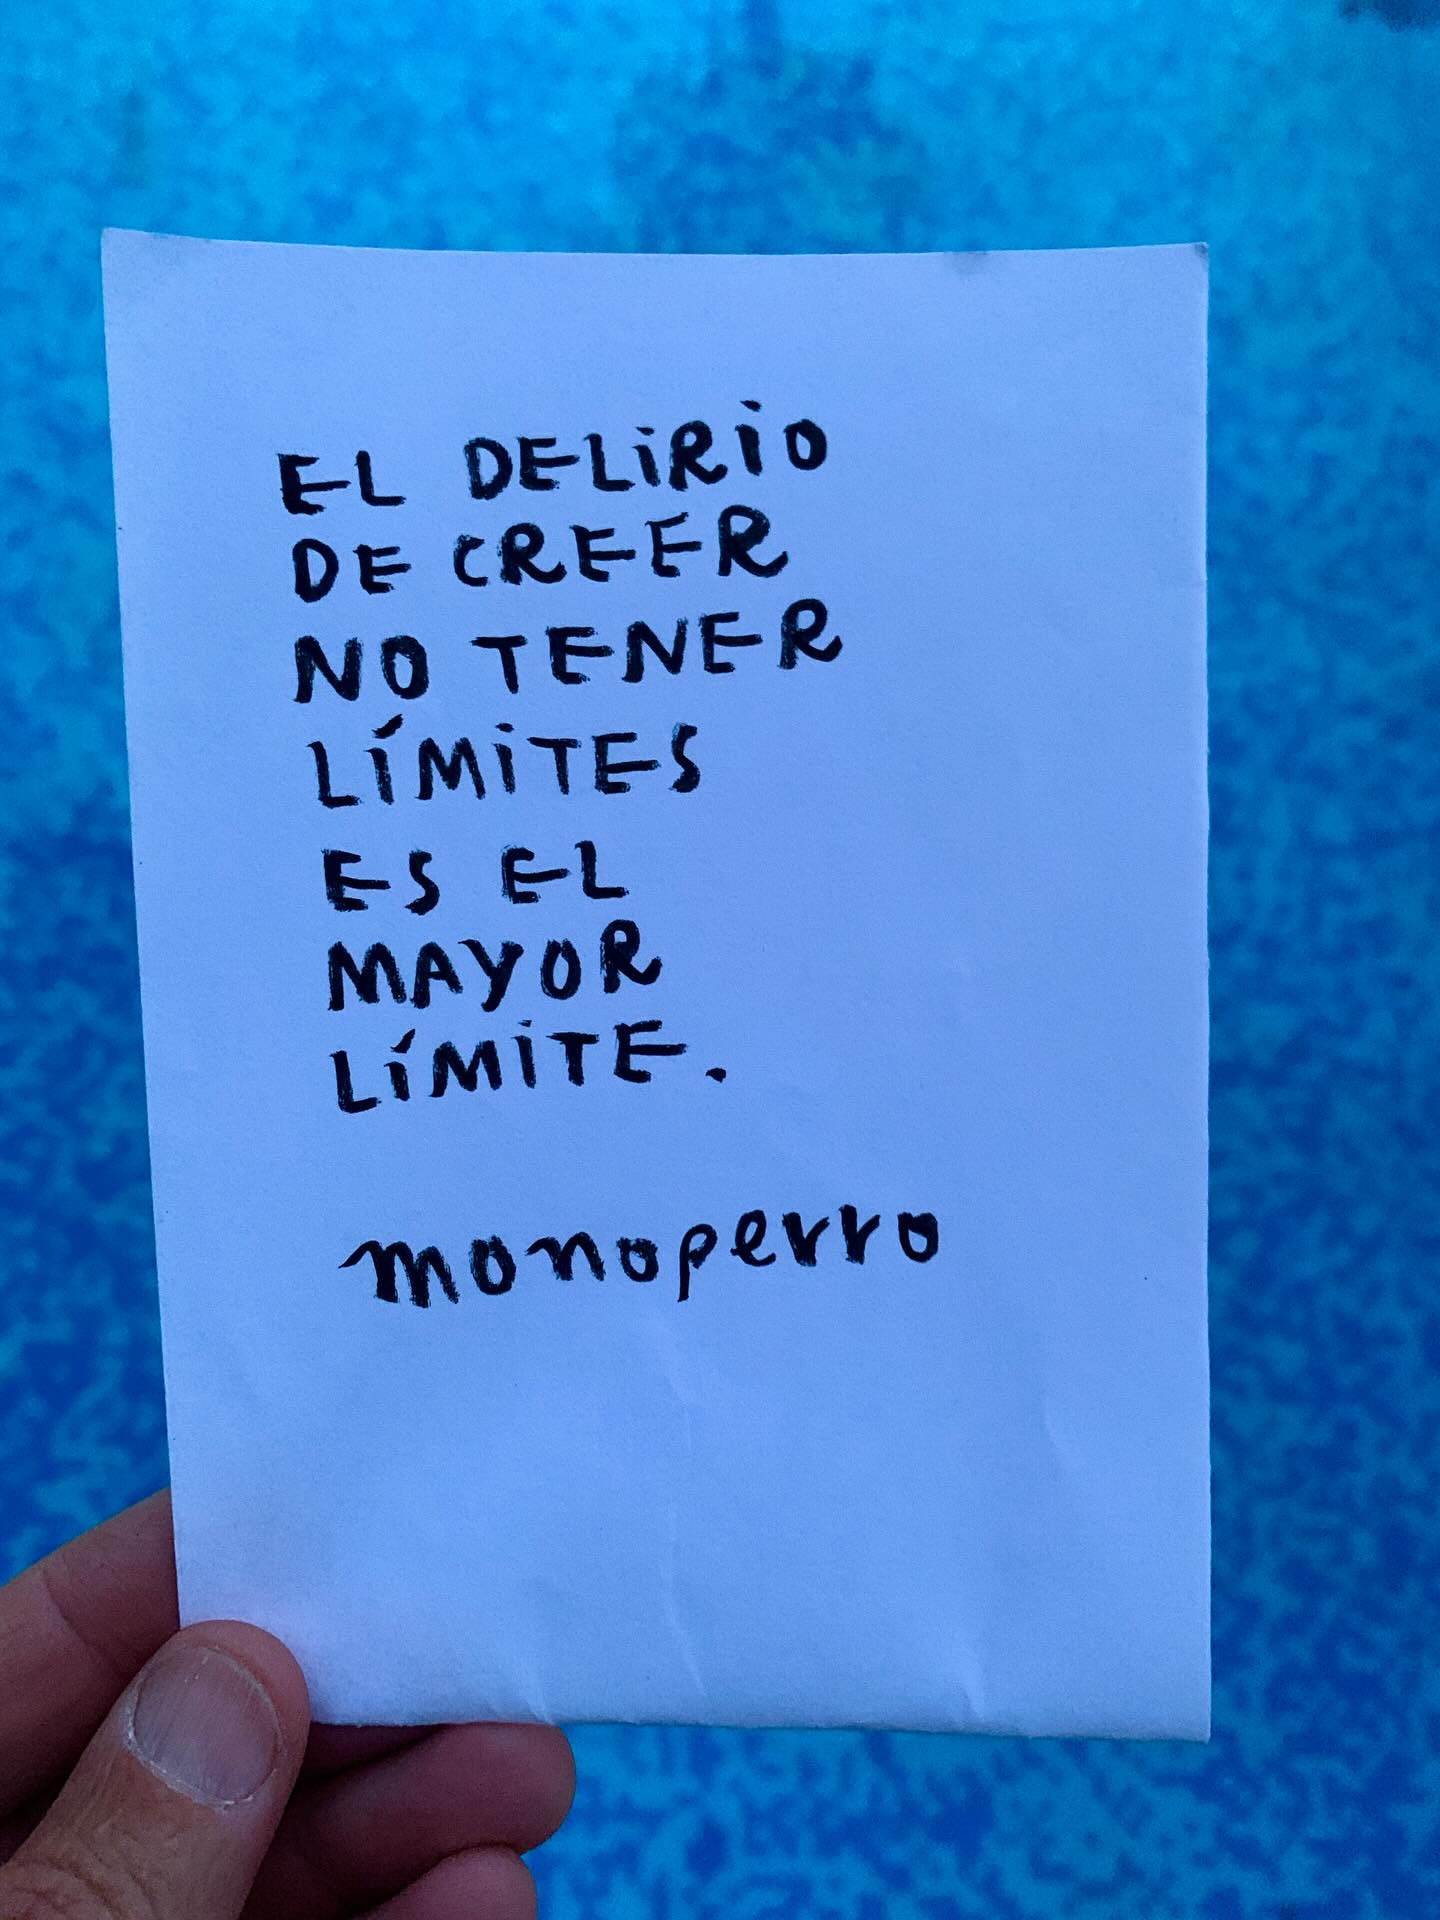 EL DELIRIO
DE CREER
NO TENER
LÍMITES
ES EL
MAYOR
LÍMITE.
monoperro